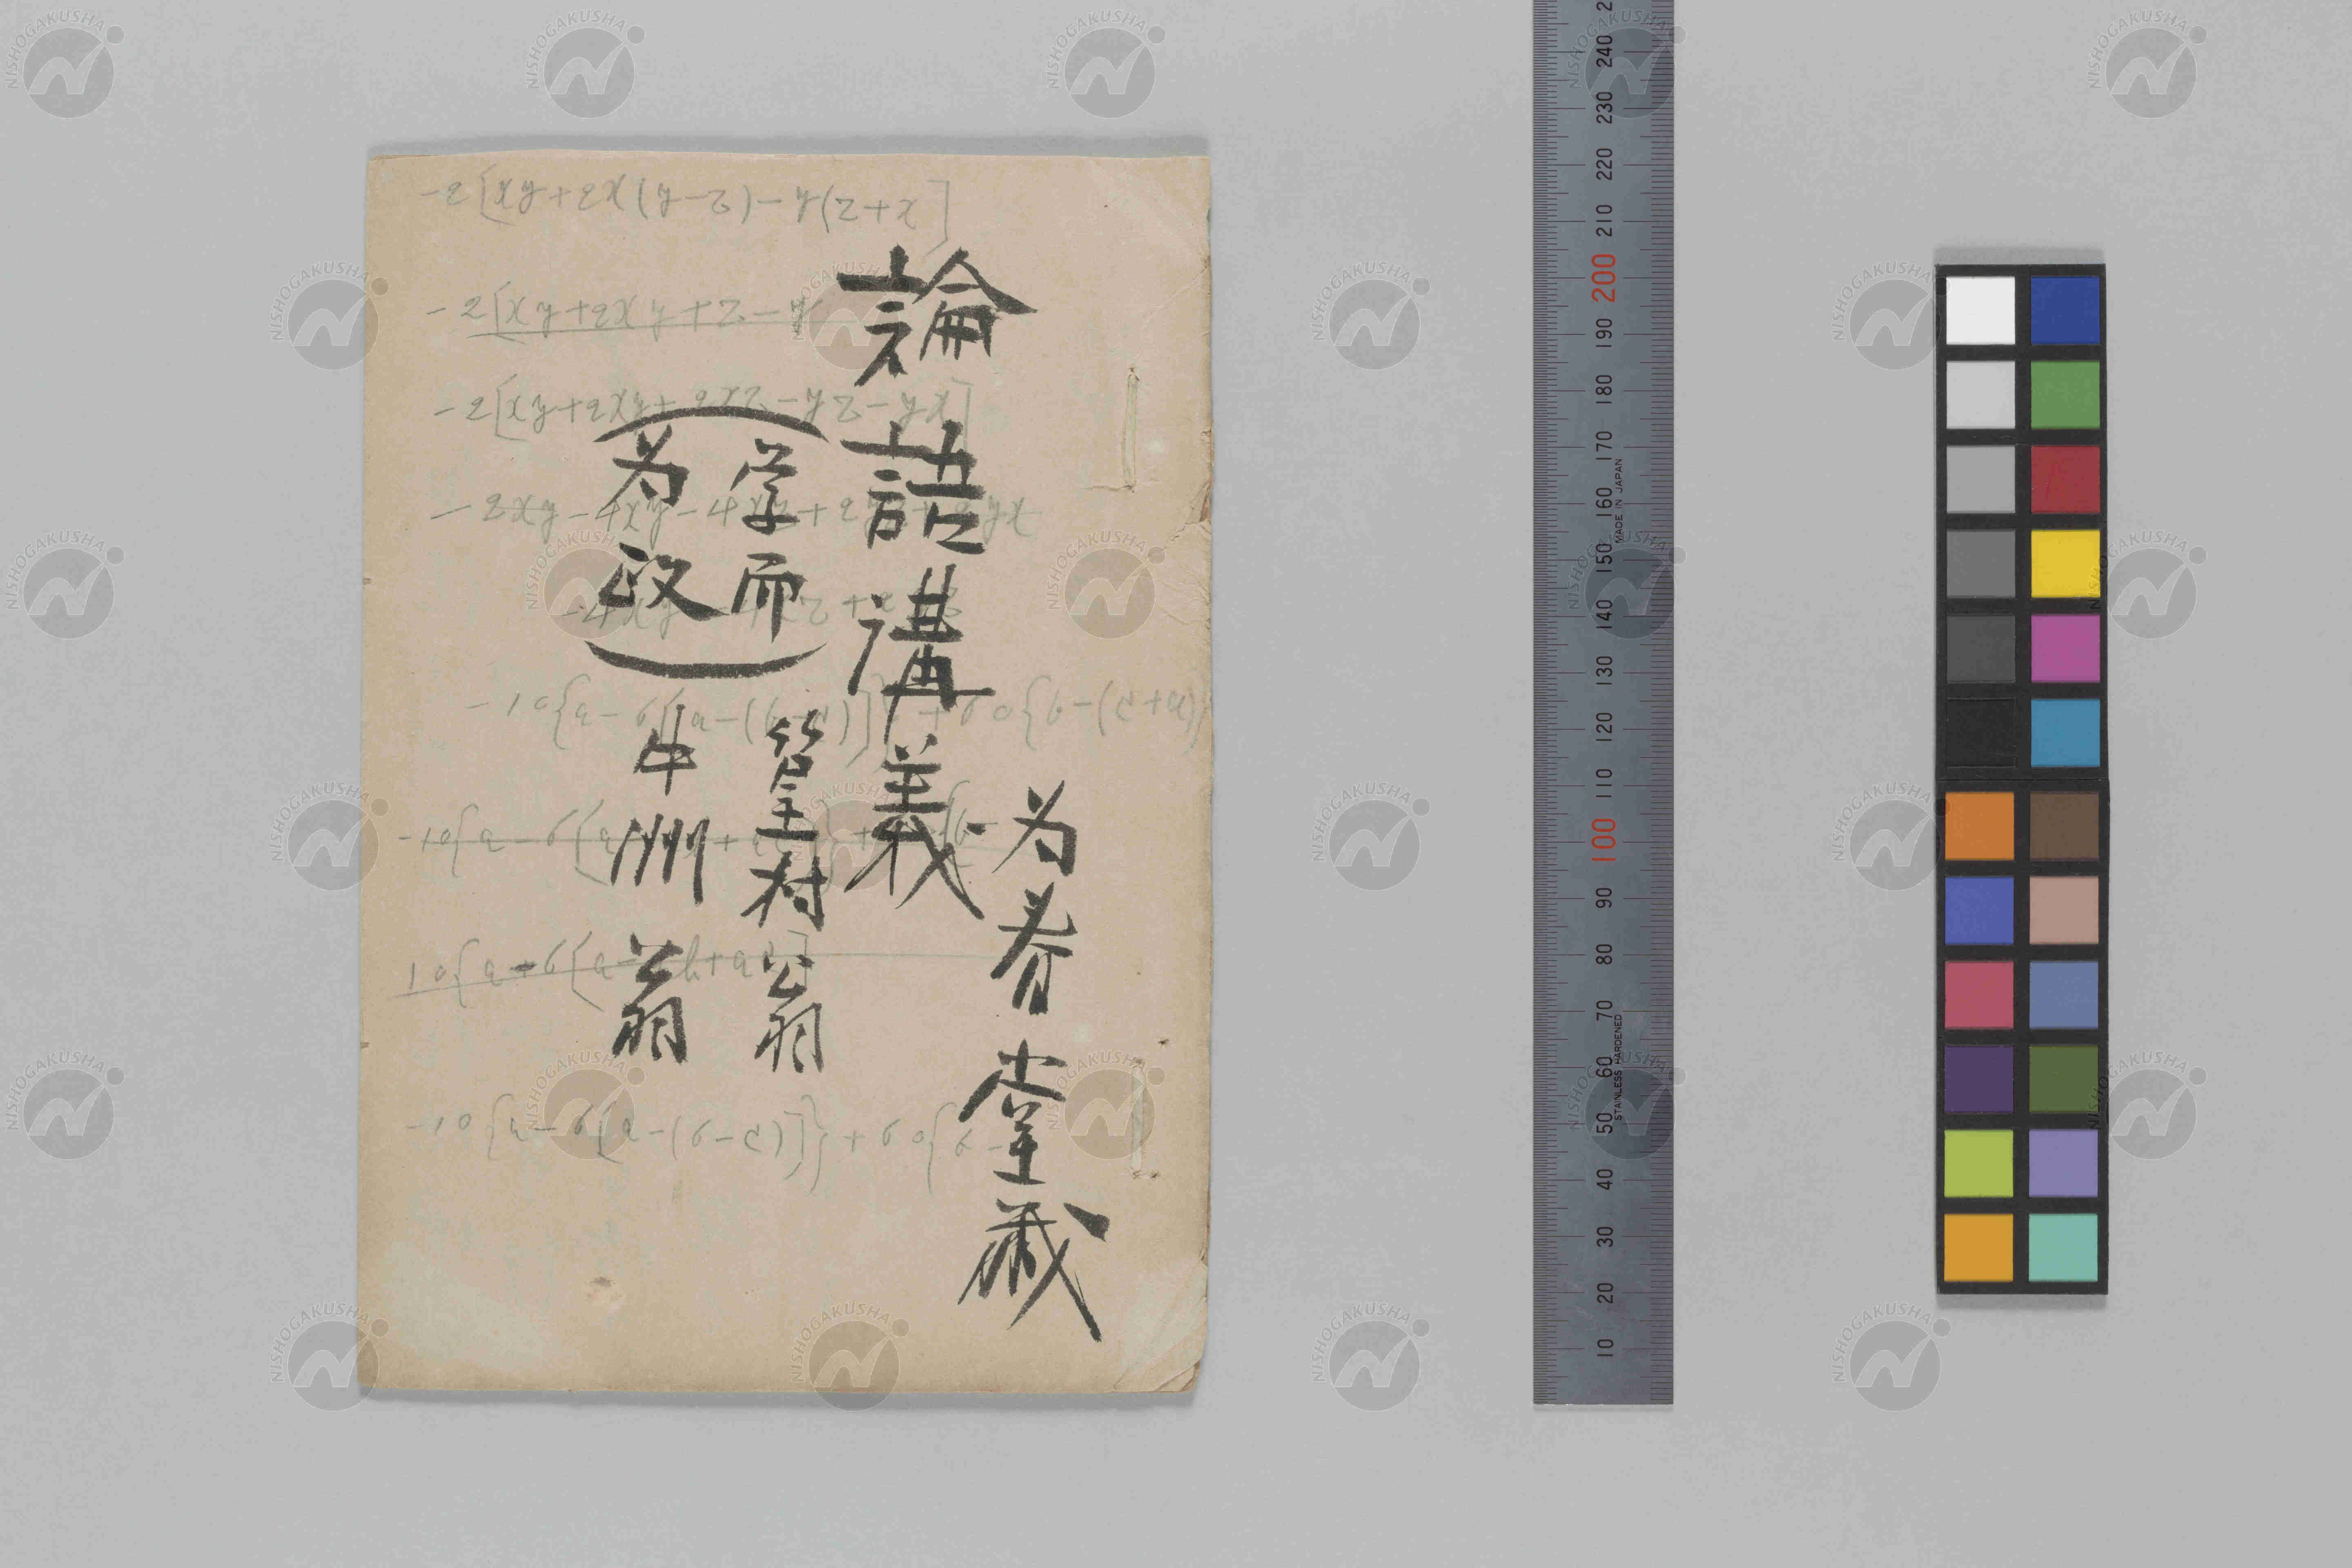 為春堂蔵
論語講義
(学而
為政)
篁村公翁
中洲公翁
-2[xy+2x(y-z)-y(z+x]
-2[xy+2xy+z-y
-2[xy+2xy+2xz-yz-yx]
-2xy-4xy-4xz+2yx
-10{a-6[a-(b-c)]}+60{b-(c+a)}
-10{a-6[a
10{a-6[a-b+ac]
-10{a-6[a-(b-c)]}+60{b-
NISHOGAKUSHA
240
230
220
210
200
190
180
170
160
150
140
130
120
110
100
90
80
70
60
50
40
30
20
10
MADE IN JAPAN
STAINLESS HARDENED